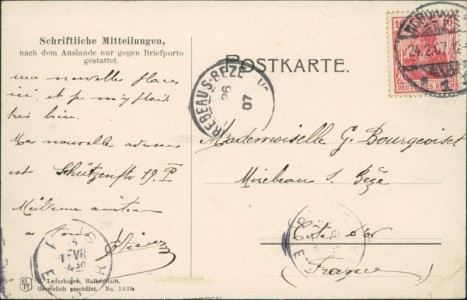 Schriftliche Mitteilungen,
nach dem Auslande nur gegen Briefporto
gestattet.
POSTKARTE.
une nouvelle place
ici et je m'y plait
très bien.
Ma nouvelle adresse
est Schützenstr 19. I
Meilleure amitiés
à tous
Mademoiselle G. Bourgeoiset
Mirebeau s. Bèze
Côte d'or
France
MIREBEAU-S-BEZE
26
07
24.2.07
DEUTSCHES REICH
Lederbogen, Halberstadt.
Gesetzlich geschützt. No. 1639